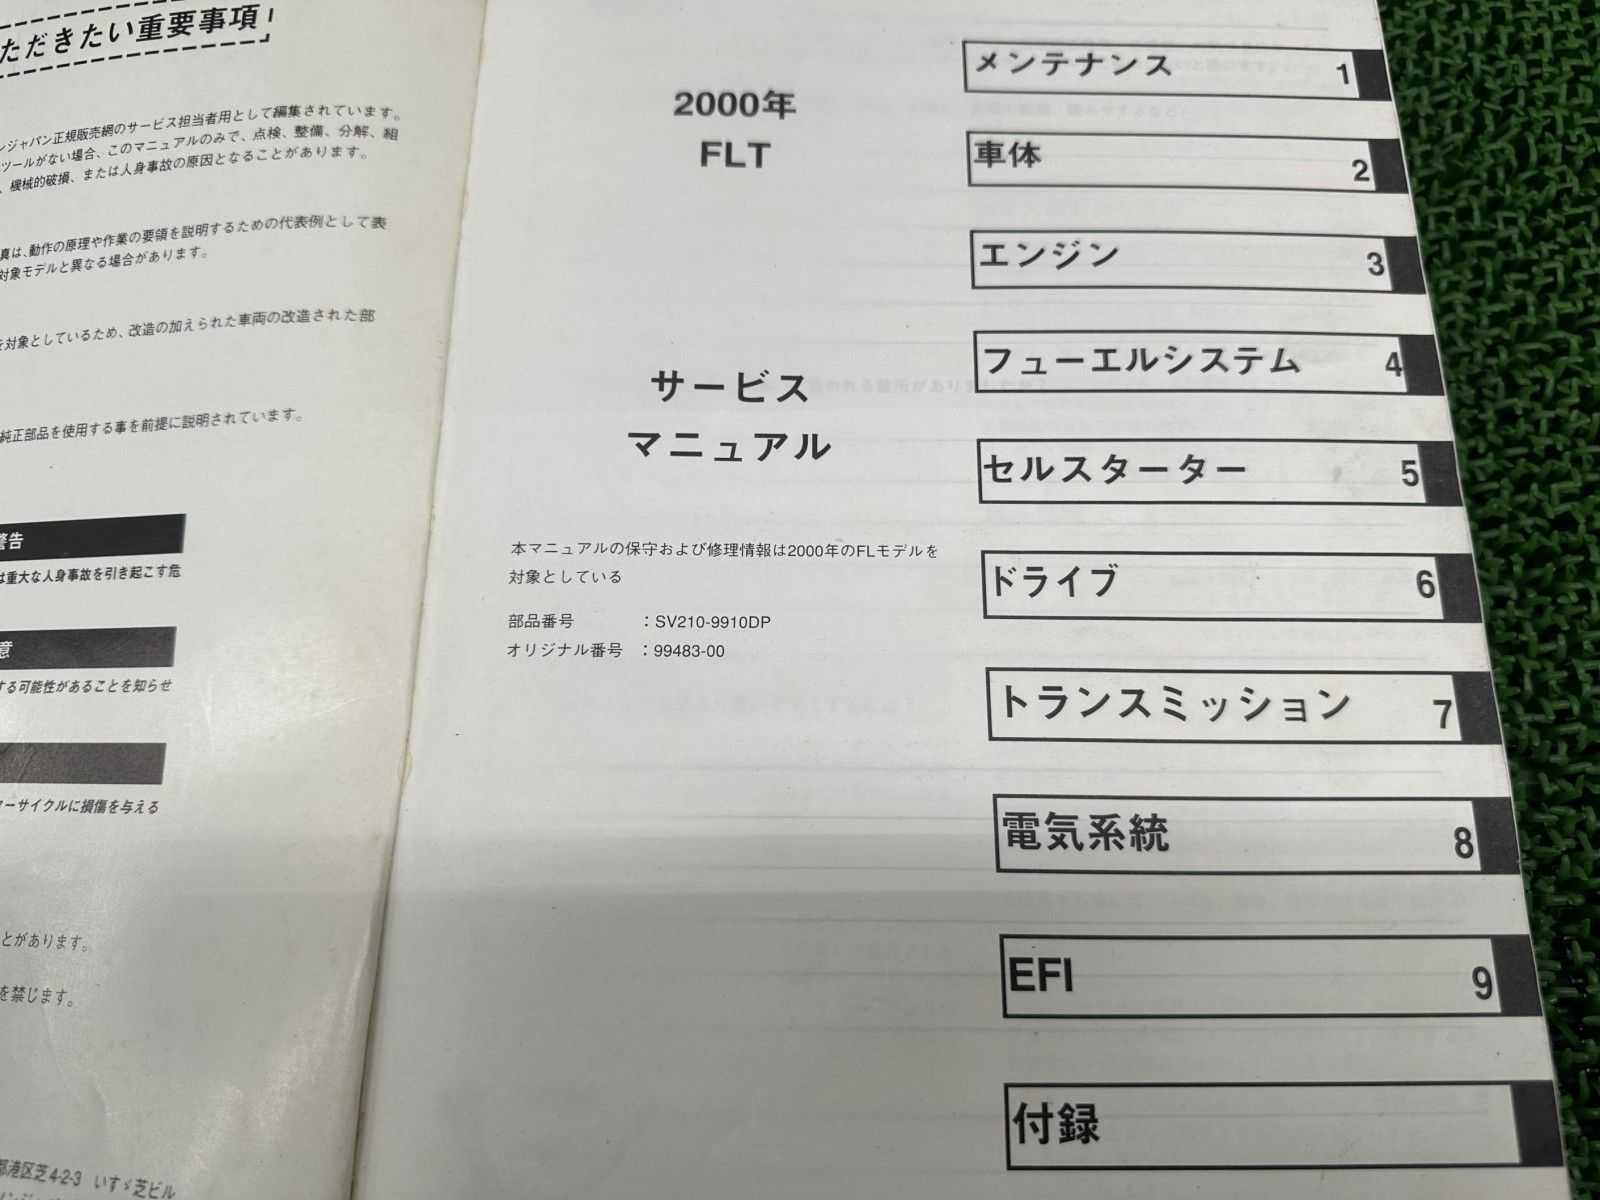 ただきたい重要事項
ンジャパン正規販売網のサービス担当者用として編集されています。
ツールがない場合、このマニュアルのみで、点検、整備、分解、組
、機械的破損、または人身事故の原因となることがあります。
真は、動作の原理や作業の要領を説明するための代表例として表
対象モデルと異なる場合があります。
を対象としているため、改造の加えられた車両の改造された部
純正部品を使用する事を前提に説明されています。
警告
は重大な人身事故を引き起こす危
意
する可能性があることを知らせ
ターサイクルに損傷を与える
とがあります。
を禁じます。
都港区芝4-2-3 いすゞ芝ビル
2000年
FLT
サービス
マニュアル
本マニュアルの保守および修理情報は2000年のFLモデルを
対象としている
部品番号 ：SV210-9910DP
オリジナル番号 ：99483-00
メンテナンス 1
車体 2
エンジン 3
フューエルシステム 4
セルスターター 5
ドライブ 6
トランスミッション 7
電気系統 8
EFI 9
付録